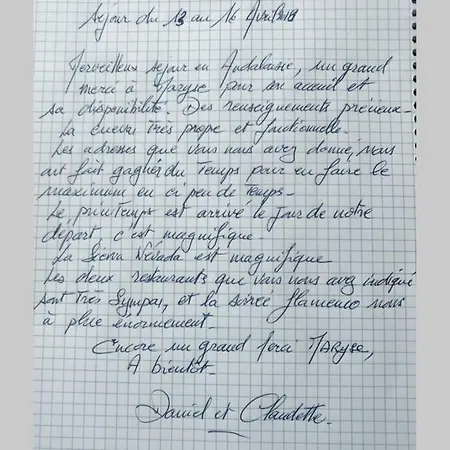 Séjour du 13 au 16 Avril 2018
Merveilleux séjour en Andalousie, un grand
merci à Maryse pour son accueil et
sa disponibilité. Des renseignements précieux.
La cueva très propre et fonctionnelle.
Les adresses que vous nous avez donné, nous
ont fait gagner du temps pour en faire le
maximum en ci peu de temps.
Le printemps est arrivé le jour de notre
départ, c'est magnifique.
La Sierra Névada est magnifique
Les deux restaurants que vous nous avez indiqué
sont très sympas, et la soirée flamenco nous
à plue énormement.
Encore un grand Merci MARYSE,
A bientôt.
Daniel et Claudette.